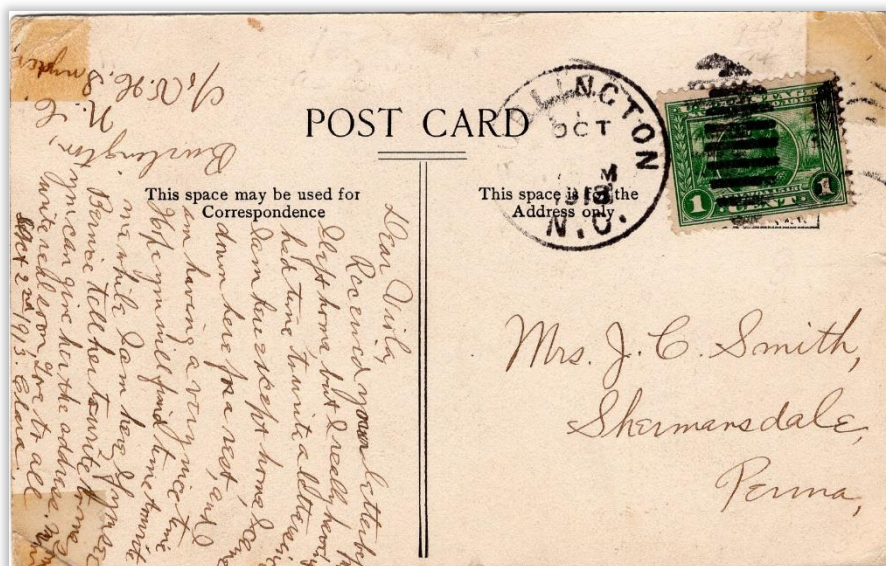 POST CARD
This space may be used for
Correspondence
This space is for the
Address only
BURLINGTON
OCT
M
1913
N.C.
1 CENT 1
Mrs. J. C. Smith,
Shermansdale,
Penna,
Dear Viola,
Received your letter
I left home, but I really haven't
had time to write a letter since
I am here except home I came
down here for a rest, and I
am having a very nice time
Hope you will find time to write
me while I am here, if you see
Bernice tell her to write to me
you can give her the address. Now
write real soon, Love to all
Oct 2nd 1913. Clara.
Burlington,
N. C.
c/o N. H. Snyder